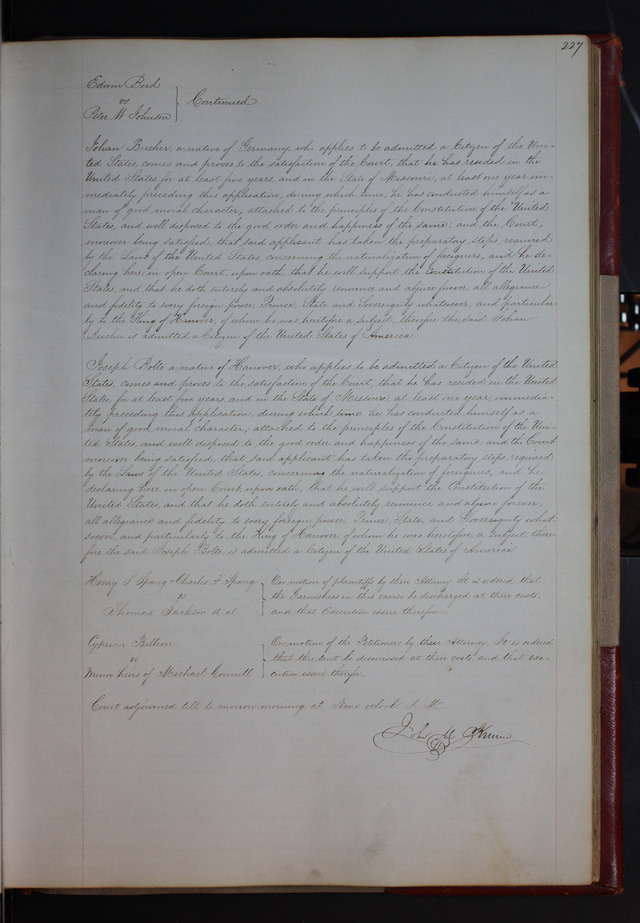 227
Edwin Bird
vs
Peter W Johnson
Continued
Johan Buscher, a native of Germany, who applies to be admitted a Citizen of the Uni-
ted States, comes and proves to the satisfaction of the Court, that he has resided in the
United States for at least five years, and in the State of Missouri, at least one year im-
mediately preceding this application, during which time, he has conducted himself as a
man of good moral character, attached to the principles of the Constitution of the United
States, and well disposed to the good order and happiness of the same: and the Court,
moreover being satisfied, that said applicant has taken the preparatory steps required
by the Laws of the United States, concerning the naturalization of foreigners, and he de-
claring here, in open Court, upon oath, that he will support the Constitution of the United
States, and that he doth entirely and absolutely renounce and abjure forever, all allegiance
and fidelity to every foreign power, Prince, State and Sovereignty whatsoever, and particular-
ly to the King of Hanover, of whom he was heretofore a subject, therefore the said Johan
Buscher is admitted a Citizen of the United States of America
Joseph Bolte, a native of Hanover, who applies to be admitted a Citizen of the United
States, comes and proves to the satisfaction of the Court, that he has resided in the United
States, for at least five years, and in the State of Missouri, at least one year, immedia-
tely preceding this application, during which time he has conducted himself as a
man of good moral character, attached to the principles of the Constitution of the Uni-
ted States, and well disposed to the good order and happiness of the same, and the Court
moreover being satisfied, that said applicant has taken the preparatory steps, required
by the Laws of the United States, concerning the naturalization of foreigners, and he
declaring here, in open Court, upon oath, that he will support the Constitution of the
United States, and that he doth entirely and absolutely renounce and abjure forever,
all allegiance and fidelity to every foreign power, Prince, State, and Sovereignty what-
soever, and particularly to the King of Hanover, of whom he was heretofore a subject there-
fore the said Joseph Bolte, is admitted a Citizen of the United States of America
Henry S Spang & Charles F Spang
vs
Thomas Jackson et al
On motion of plaintiffs by their Attorney It is ordered that
the Garnishees in this cause be discharged at their costs,
and that Execution issue therefor
Cyprian Billion
vs
Minor heirs of Michael Connell
On motion of the Petitioners by their Attorney, It is ordered
that this suit be dismissed at their costs, and that exe-
cution issue therefor
Court adjourned till to morrow morning at nine oclock A M
John M